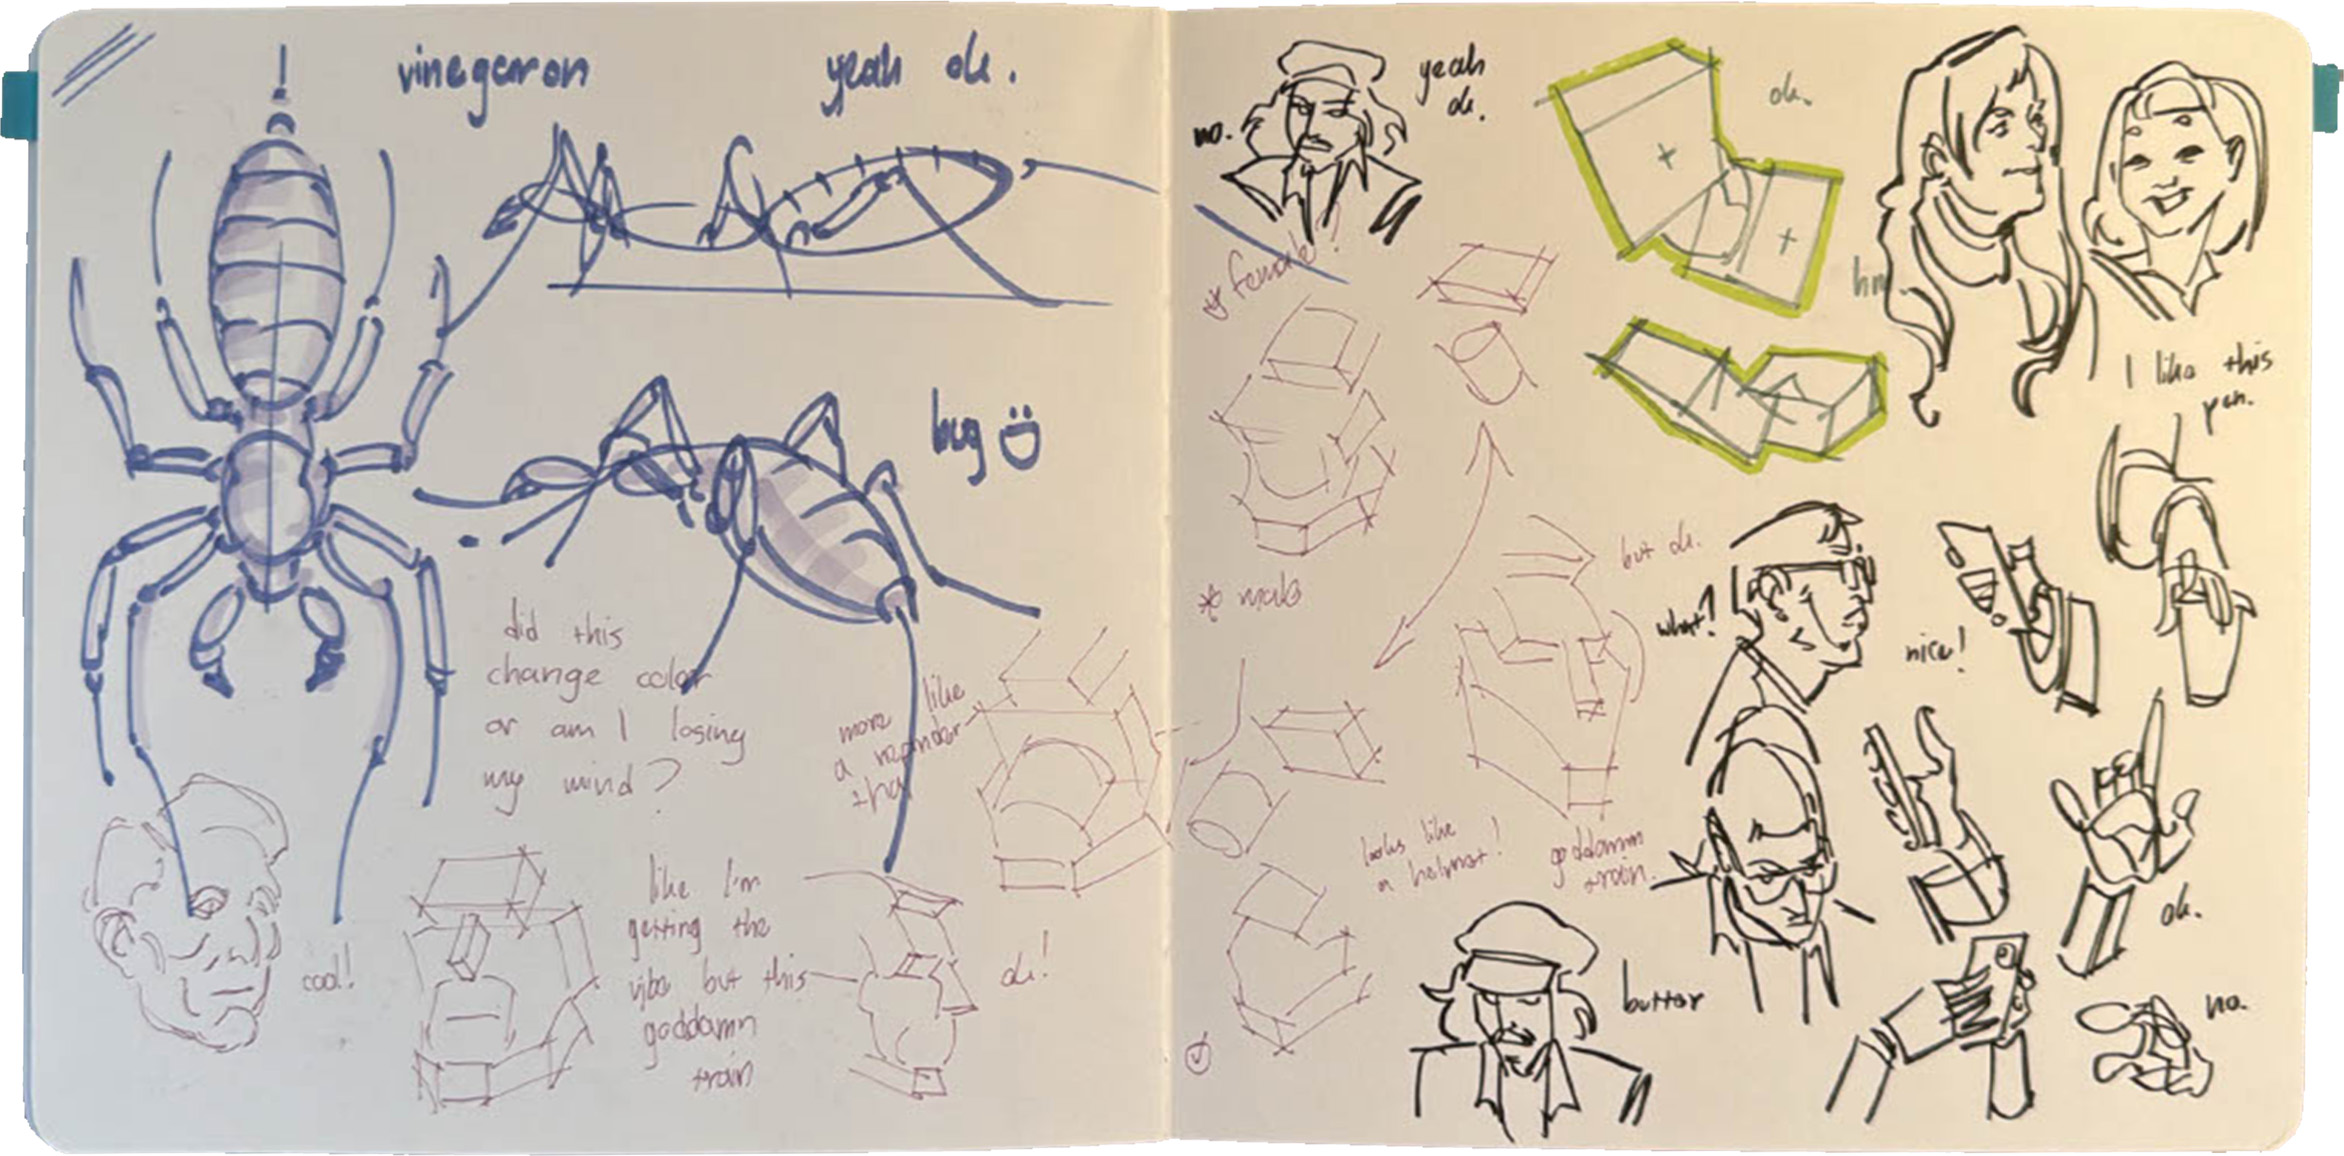 vinegaron
yeah ok.
bug
did this
change color
or am I losing
my mind?
more like
a reminder
tho
cool!
like I'm
getting the
vibe but this
goddamn
train
ok!
no.
yeah
ok.
female!
ok.
hm
I like this
pen.
male
but ok.
what?
nice!
looks like
a helmet!
goddamn
train.
ok.
better
no.